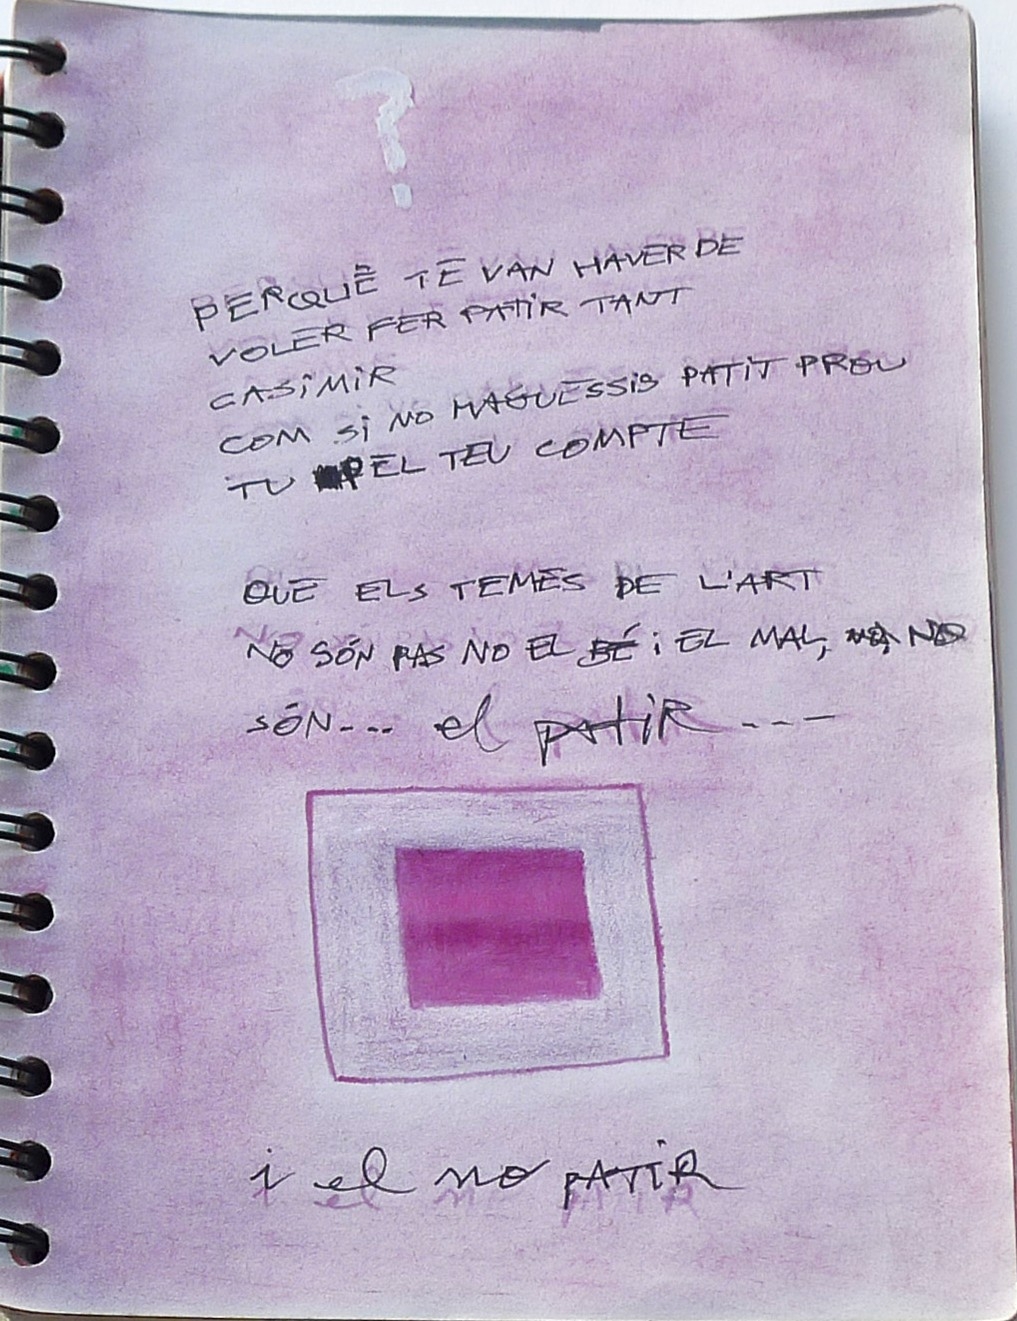 ?
PERQUÈ TE VAN HAVER DE
VOLER FER PATIR TANT
CASIMIR
COM SI NO HAGUESSIS PATIT PROU
TU PEL TEU COMPTE
QUE ELS TEMES DE L'ART
NO SÓN PAS NO EL BÉ i EL MAL, NO
SÓN... el patir ---
i el no patir